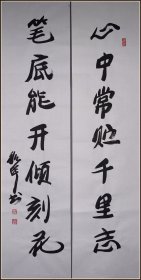 心中常贮千里志
笔底能开倾刻花